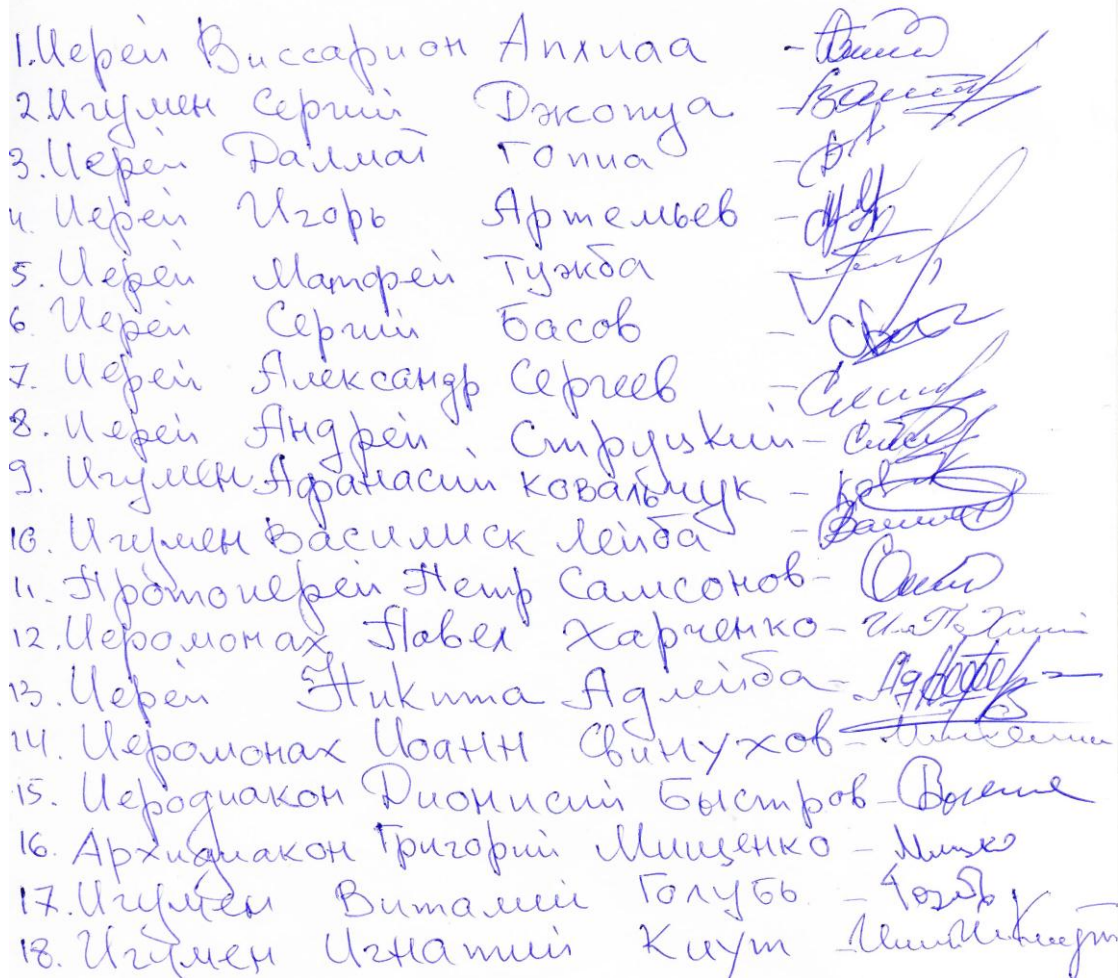 1. Иерей Виссарион Апхиаа -
2. Игумен Сергий Джопуа -
3. Иерей Далмат Гопиа -
4. Иерей Игорь Артемьев -
5. Иерей Матфей Тужба
6. Иерей Сергий Басов -
7. Иерей Александр Сергеев -
8. Иерей Андрей Струцкий -
9. Игумен Афанасий Ковальчук -
10. Игумен Василиск Лейба -
11. Протоиерей Петр Самсонов -
12. Иеромонах Павел Харченко -
13. Иерей Никита Адлейба -
14. Иеромонах Иоанн Свинухов -
15. Иеродиакон Дионисий Быстров -
16. Архидиакон Григорий Мищенко -
17. Игумен Виталий Голубь -
18. Игумен Игнатий Киут